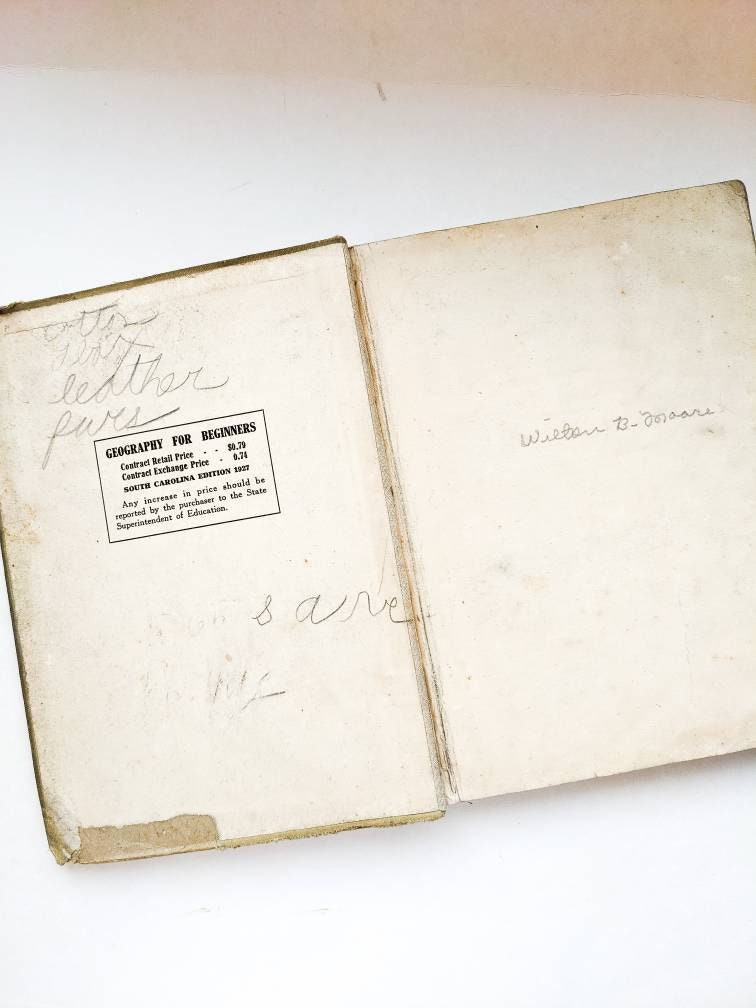 cotton
leather
furs
GEOGRAPHY FOR BEGINNERS
Contract Retail Price - - $0.79
Contract Exchange Price - 0.74
SOUTH CAROLINA EDITION 1927
Any increase in price should be
reported by the purchaser to the State
Superintendent of Education.
Wilton B. Moore